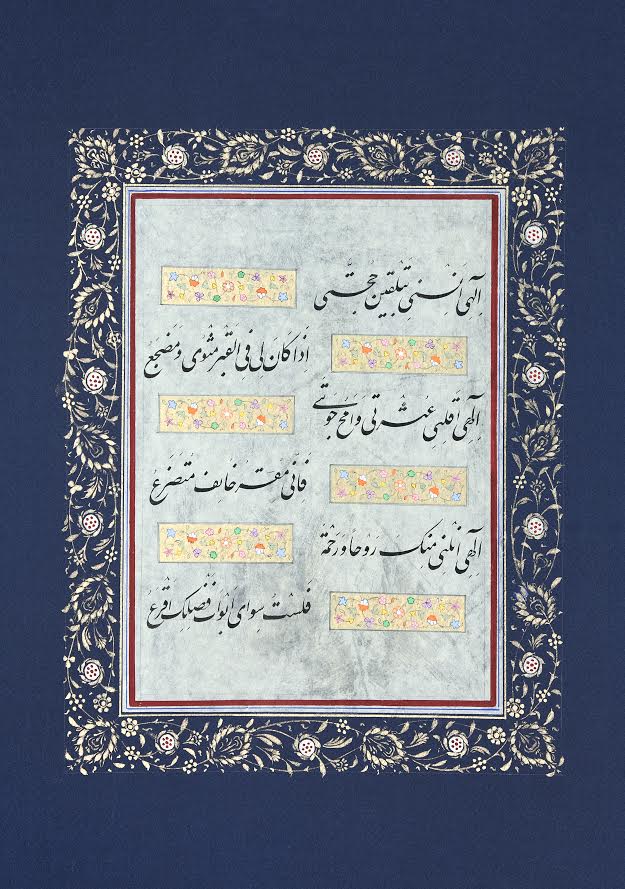 اِلٰهی اَنِسنی بتلقین حُجَّتی
اِذا کَانَ لی فِی القَبر مَثوی وَ مَضجَعُ
اِلٰهی اَقِلنی عَثرَتی وَامحُ حَوبَتی
فَاِنّی مُقِرّ خائِف مُتَضَرِّعُ
اِلٰهی اَنِلنی مِنکَ رَوحاً وَ رَحمَة
فَلَستُ سِوای ابواب فَضلِکَ اَقرَعُ